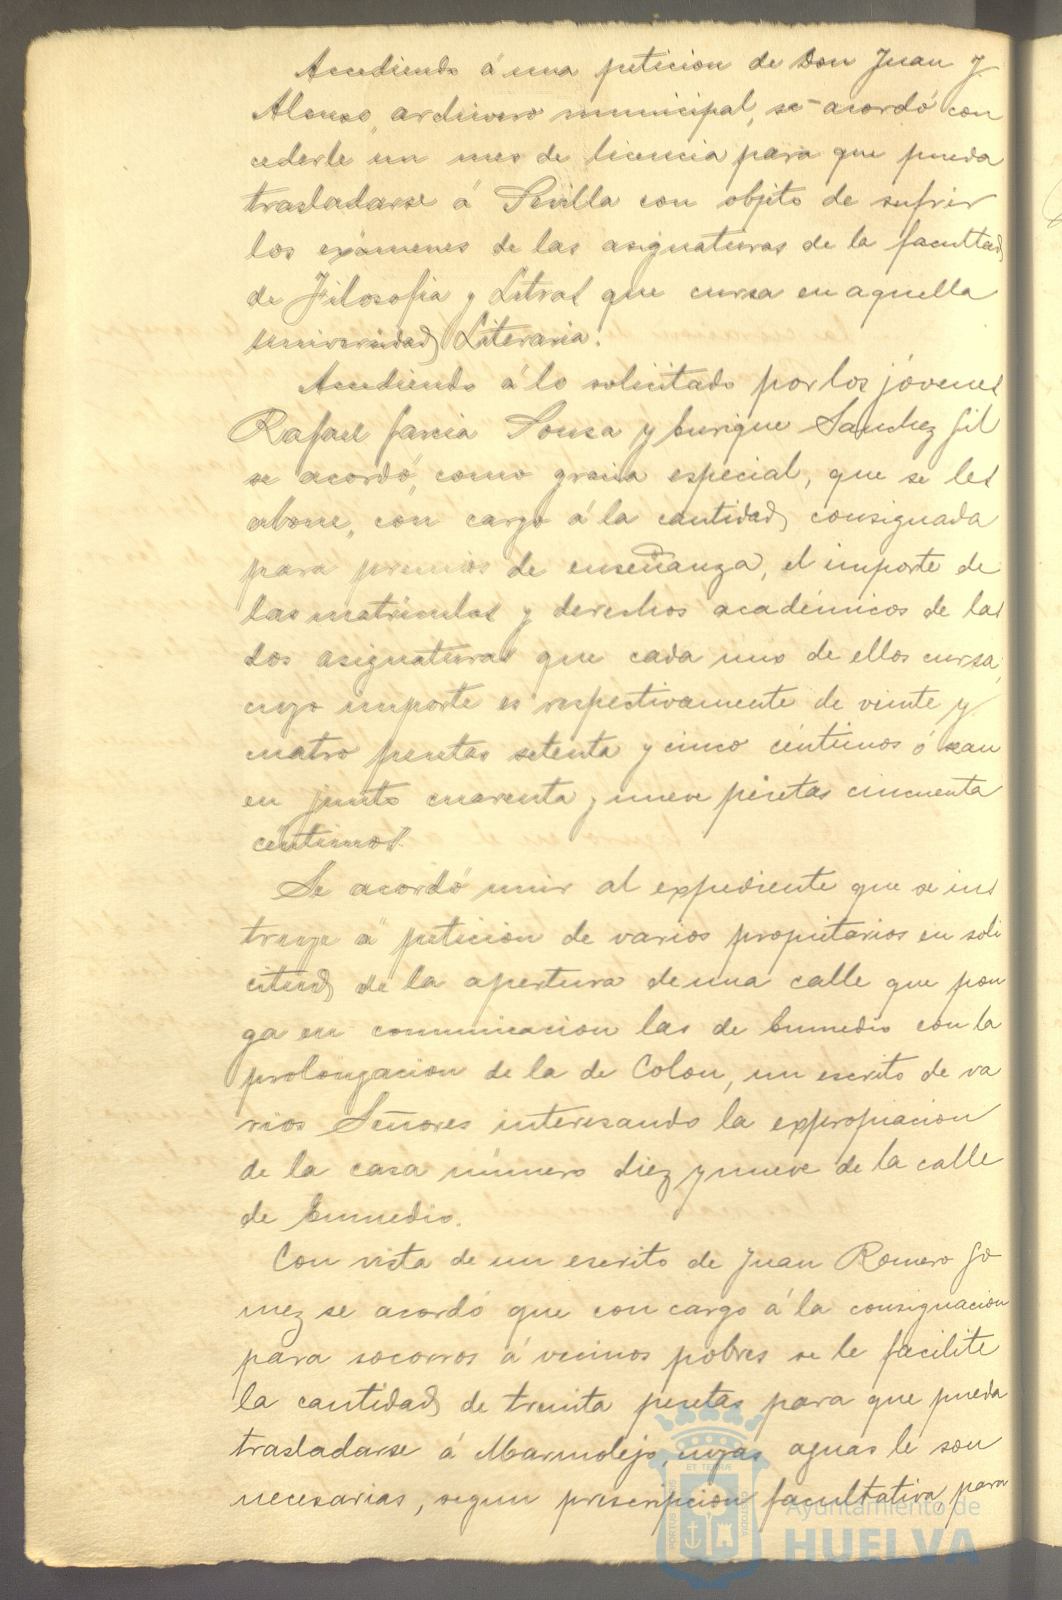 Accediendo á una peticion de Don Juan y
Alonso, archivero municipal, se acordó con
cederle un mes de licencia para que pueda
trasladarse á Sevilla con objeto de sufrir
los exámenes de las asignaturas de la facultad
de Filosofia y Letras que cursa en aquella
Universidad Literaria.
Accediendo á lo solicitado por los jóvenes
Rafael Garcia Sousa y Enrique Sanchez Gil
se acordó, como gracia especial, que se les
abone, con cargo á la cantidad consignada
para premios de enseñanza, el importe de
las matrículas y derechos académicos de las
dos asignaturas que cada uno de ellos cursa,
cuyo importe es respectivamente de veinte y
cuatro pesetas setenta y cinco céntimos ó sean
en junto cuarenta y nueve pesetas cincuenta
céntimos.
Se acordó unir al expediente que se ins
truye á peticion de varios propietarios en soli
citud de la apertura de una calle que pon
ga en comunicacion las de Enmedio con la
prolongacion de la de Colon, un escrito de va
rios Señores interesando la expropiacion
de la casa número diez y nueve de la calle
de Enmedio.
Con vista de un escrito de Juan Romero Go
mez se acordó que con cargo á la consignacion
para socorros á vecinos pobres se le facilite
la cantidad de treinta pesetas para que pueda
trasladarse á Marmolejo, cuyas aguas le son
necesarias, segun prescripcion facultativa, para
Ayuntamiento de
HUELVA